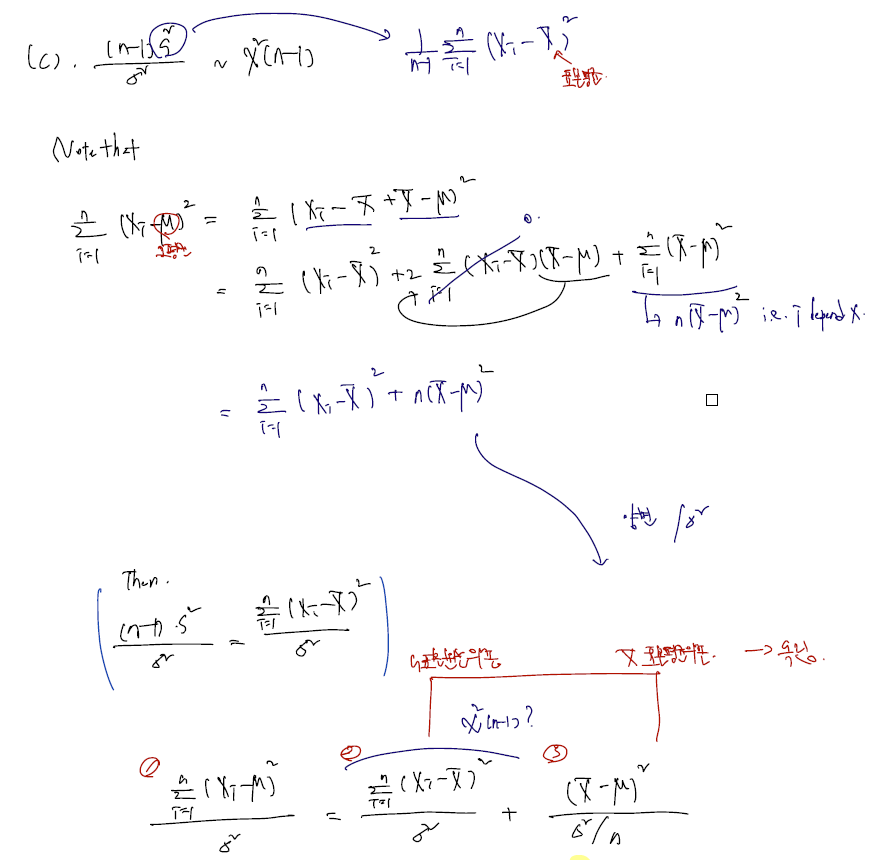 (c). (n-1)S² / σ² ~ χ²(n-1)
1/(n-1) Σ_{i=1}^{n} (Xᵢ - X̄)²
표본평균.
Note that
Σ_{i=1}^{n} (Xᵢ - μ)² = Σ_{i=1}^{n} (Xᵢ - X̄ + X̄ - μ)²
0.
= Σ_{i=1}^{n} (Xᵢ - X̄)² + 2 Σ_{i=1}^{n} (Xᵢ - X̄)(X̄ - μ) + Σ_{i=1}^{n} (X̄ - μ)²
↳ n(X̄ - μ)² i.e. i depend X.
= Σ_{i=1}^{n} (Xᵢ - X̄)² + n(X̄ - μ)²
/σ²
Then.
(n-1)·S² / σ² = Σ_{i=1}^{n} (Xᵢ - X̄)² / σ²
→ 독립.
χ²(n-1)?
① ② ③
Σ_{i=1}^{n} (Xᵢ - μ)² / σ² = Σ_{i=1}^{n} (Xᵢ - X̄)² / σ² + (X̄ - μ)² / (σ²/n)